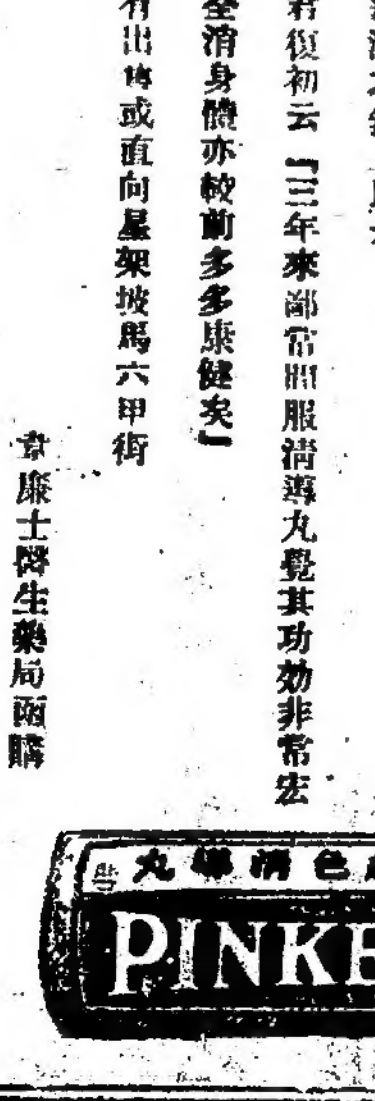 君復初云『三年來鄙常間服清導丸覺其功効非常宏
全消身體亦較前多多康健矣』
有出售或直向星架坡馬六甲街
韋廉士醫生藥局函購
丸導清色
PINKE